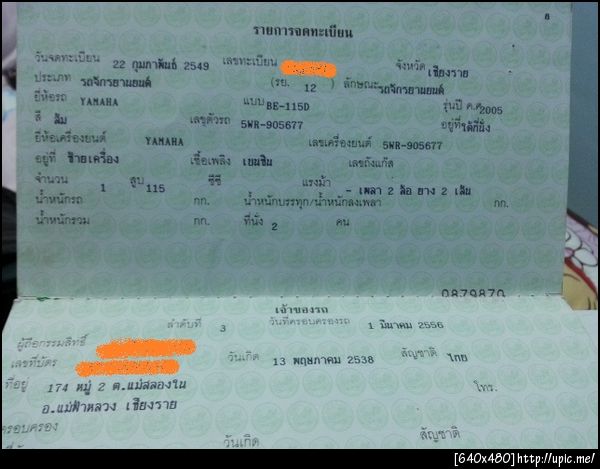 8
รายการจดทะเบียน
วันจดทะเบียน 22 กุมภาพันธ์ 2549 เลขทะเบียน จังหวัด เชียงราย
ประเภท รถจักรยานยนต์ (รย. 12 ) ลักษณะ รถจักรยานยนต์
ยี่ห้อรถ YAMAHA แบบ BE-115D รุ่นปี ค.ศ 2005
สี ส้ม เลขตัวรถ 5WR-905677 อยู่ที่ ใต้ที่นั่ง
ยี่ห้อเครื่องยนต์ YAMAHA เลขเครื่องยนต์ 5WR-905677
อยู่ที่ ซ้ายเครื่อง เชื้อเพลิง เบนซิน เลขถังแก๊ส
จำนวน 1 สูบ 115 ซีซี แรงม้า - เพลา 2 ล้อ ยาง 2 เส้น
น้ำหนักรถ กก. น้ำหนักบรรทุก/น้ำหนักลงเพลา กก.
น้ำหนักรวม กก. ที่นั่ง 2 คน
0879870
เจ้าของรถ
ลำดับที่ 3 วันที่ครอบครองรถ 1 มีนาคม 2556
ผู้ถือกรรมสิทธิ์
เลขที่บัตร วันเกิด 13 พฤษภาคม 2538 สัญชาติ ไทย
ที่อยู่ 174 หมู่ 2 ต.แม่สลองใน โทร.
อ.แม่ฟ้าหลวง เชียงราย
วันเกิด สัญชาติ
[640x480] http://upic.me/